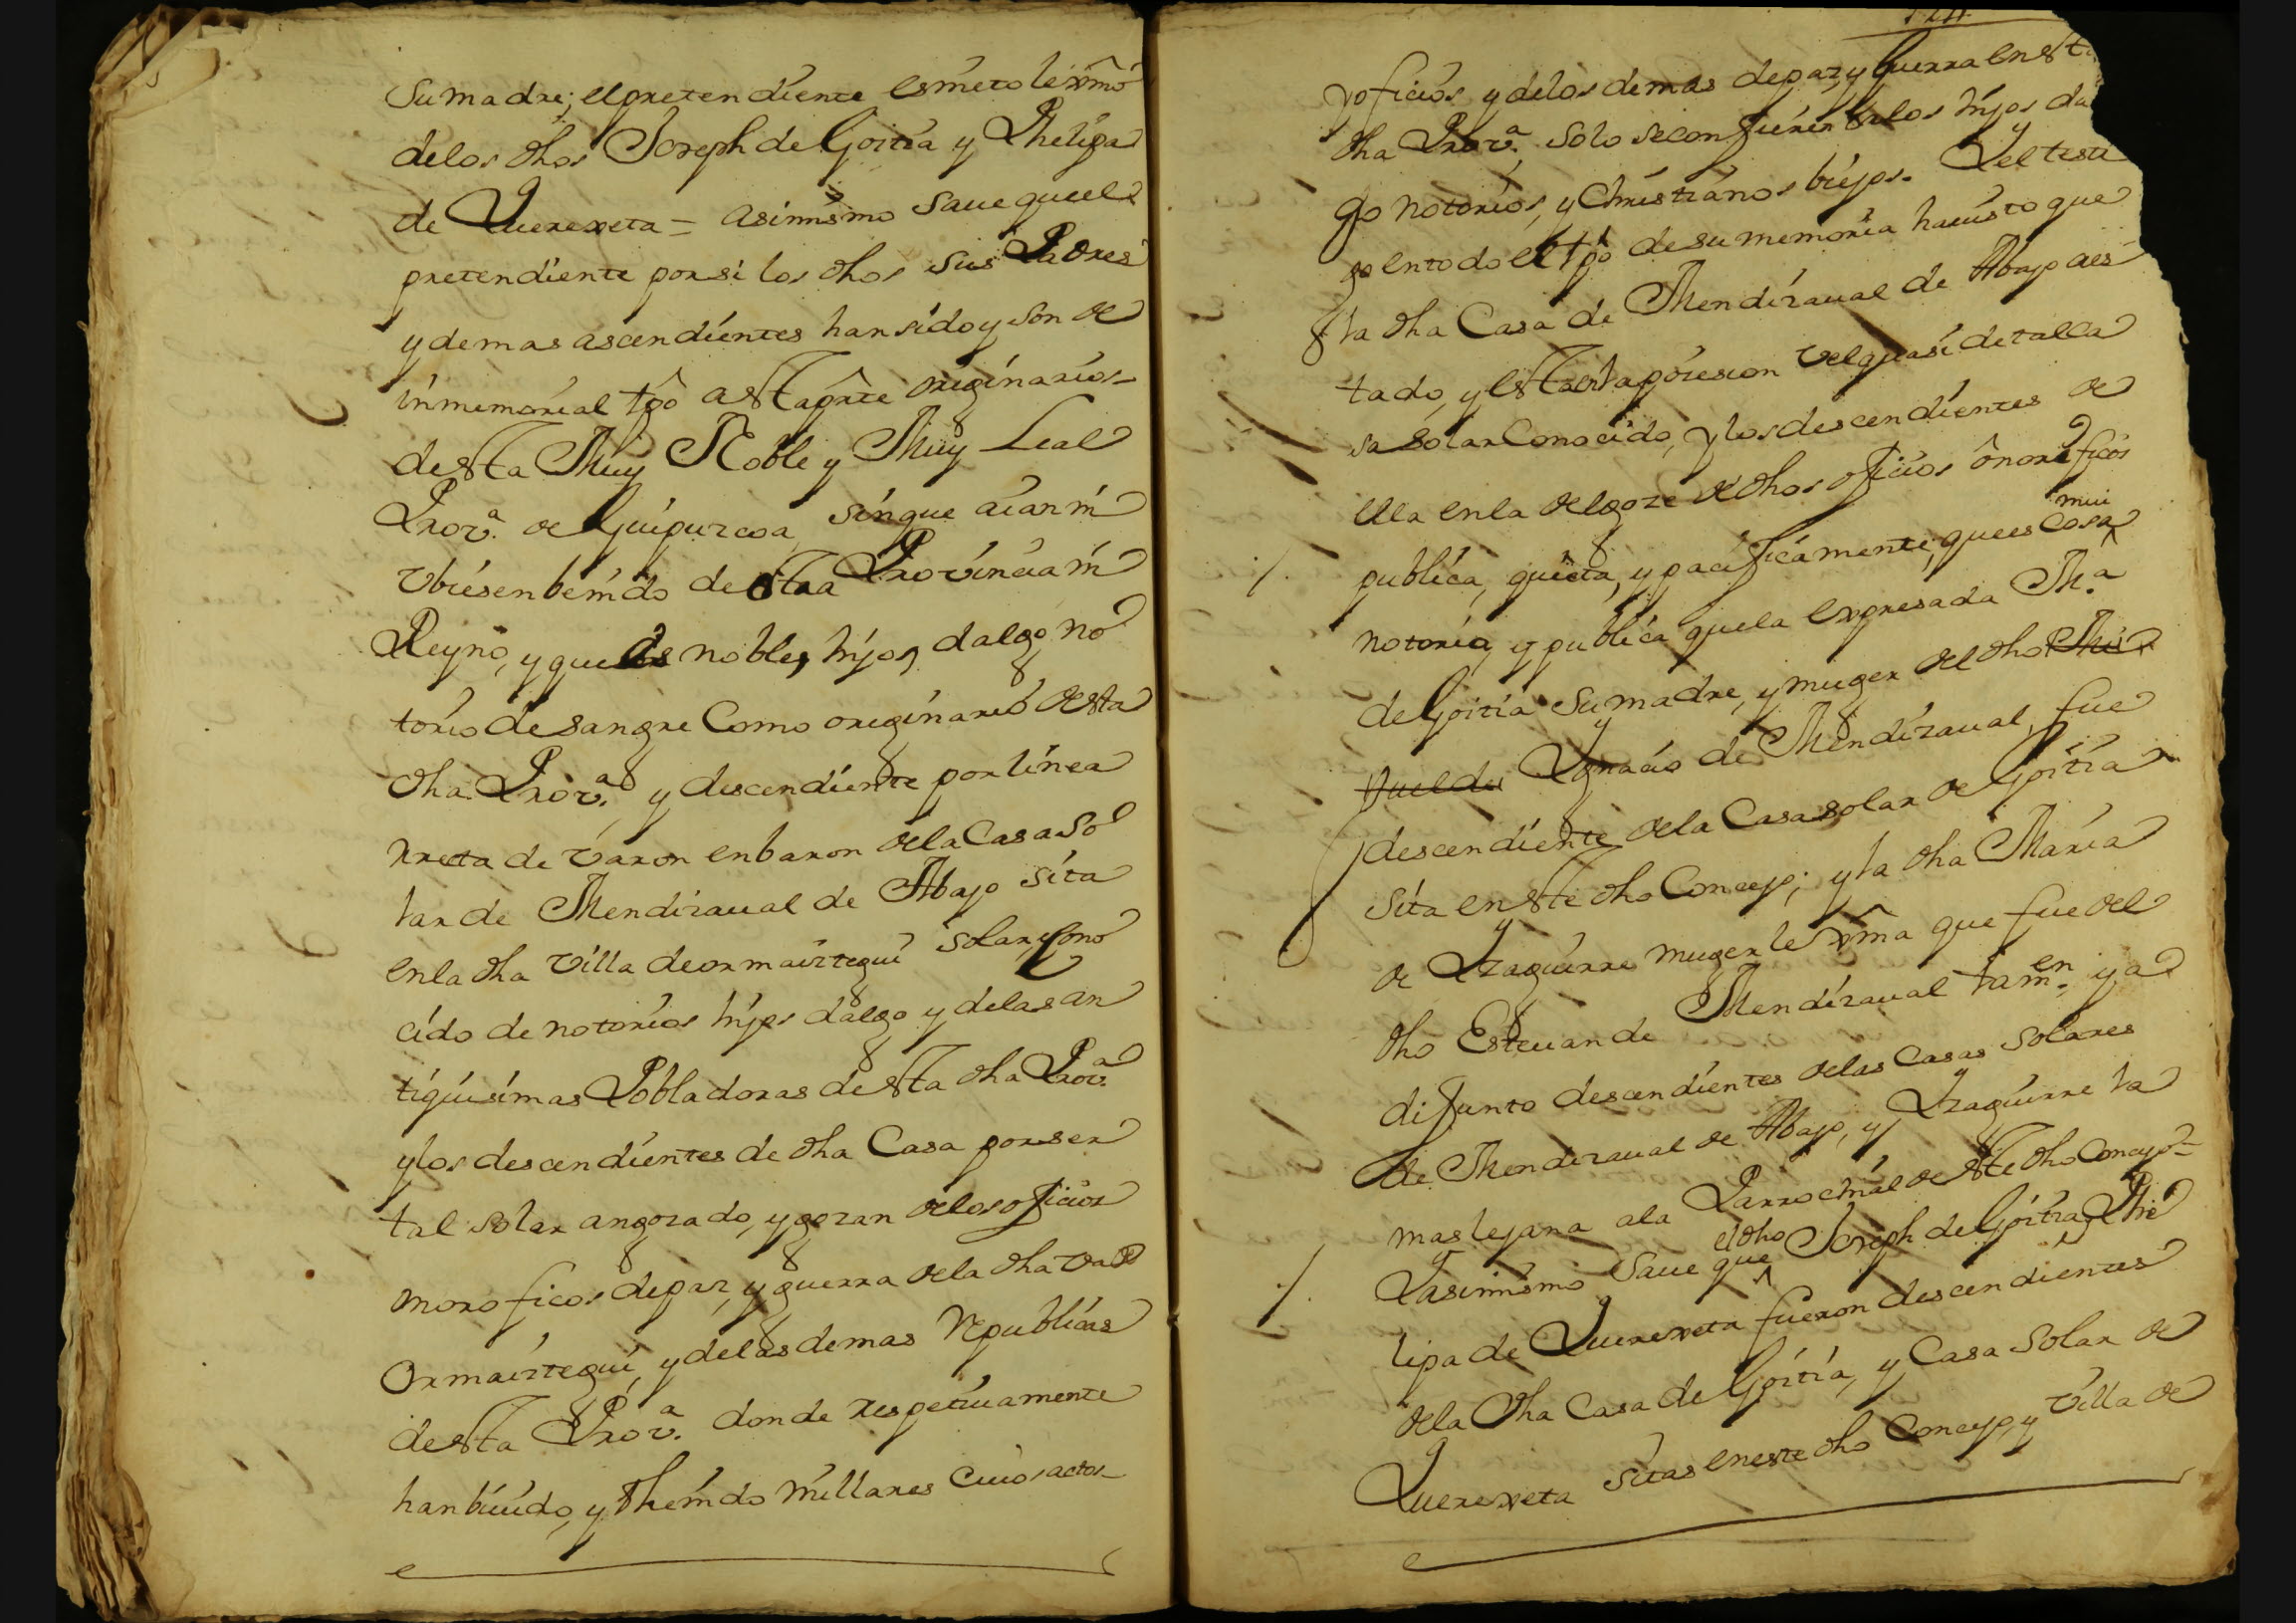 Su madre; el pretendiente es nieto lexmô
de los dhos Joseph de Goitia y Phelipa
de Querexeta = asimismo saue que el
pretendiente por si los dhos sus Padres
y demas ascendientes han sido y son de
inmemorial tpô asta aprte originarios
desta Muy Noble y Muy Leal
Provª. de Guipurcoa, sin que aian ni
vbiesen benido de otra Provincia ni
Reyno, y que es noble, hijo, dalgo, no
torio de sangre Como originario desta
dha Provª. y descendiente por linea
rrecta de varon en baron de la Casa So
lar de Mendizaual de Abajo sita
en la dha villa de ormaiztegui solar, cono
cido de notorios hijos dalgo y de las an
tiquisimas Pobladoras desta dha Provª.
y los descendientes de dha Casa por ser
tal solar an gozado, y gozan de los oficios
onoroficos de paz, y guerra de la dha va de
Ormaiztegui, y de las demas rrepublicas
desta Provª. donde respetiuamente
han biuido, y thenido millares cuios actos
124
y oficios y de los demas de paz, y Guerra en st
dha Provª. solo se confieren a los hijos da
go notorios, y Christianos biejos. Y el testi
go en todo el tpô de su memoria ha uisto que
la dha Casa de Mendizaual de Abajo aes
tado, y esta en la posesion vel quasi de tal Ca
sa Solar Conocido, y los descendientes de
ella en la del goze de dhos oficios ônorificos
publica, quieta, y pacificamente, que es cosa
mui
notoria, y publica que la expresada Mª.
de Goitia su madre, y muger del dho
Ygnacio de Mendizaual, fue
descendiente de la Casa solar de Goitia
sita en ste dho Concejo; y la dha Maria
de Yzaguirre muger lexmâ que fue del
dho Esteuan de Mendizaual tamen. ya
difunto descendientes de las Casas Solares
de Mendizaual de Abajo, y Yzaguirre la
mas lejana a la Parrochial de ste dho Concejo
Y asimismo saue que el dho Joseph de Goitia, y Phe
lipa de Querexeta fueron descendientes
de la dha Casa de Goitia, y Casa Solar de
Querexeta sitas en este dho Concejo, y villa de